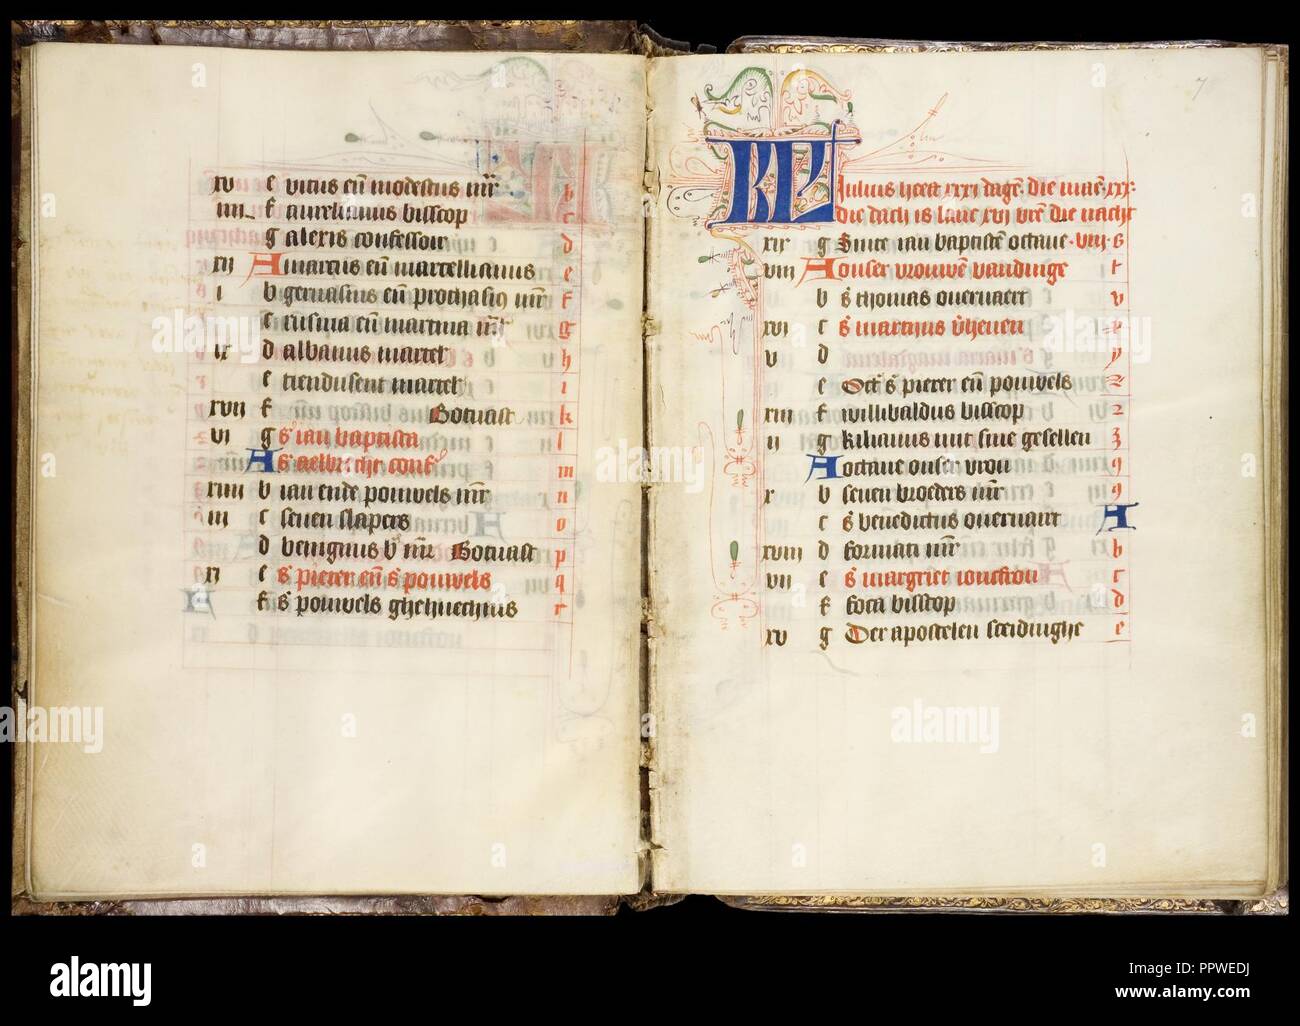 xv c vitus en modestus mr b
iiii f aurelianus bisscop c
g alexis confessoir d
xii A marcus en marcellianus e
i b gervasius en prothasius mr f
c g
ix d albanus martel h
e tienduisent martel i
xvii f Gotuast k
vi g s' ian baptista l
A s' aelbrecht conf' m
xiiii b ian ende pouwels mr n
iii c seven slapers o
d benignus b mr Gotuast p
xi e s' pieter en s' pouwels q
f s' pouwels ghehuechnis r
7
KL Julius heeft xxxi daghe. die mae. xxx.
die dach is lanc xvi vre die nacht
xix g Sinte ian baptisten octaue. viii. s
viii A onser vrouwen vandinge t
b s' thomas overvaert v
xvi c s' martijns verheven x
v d y
e Oct' s' pieter en pouwels z
xiii f willibaldus bisscop 2
ii g kilianus mit sine gesellen 3
A octaue onser vrou 9
x b seven broeders mr 9
c s' benedictus overvaart A
xviii d formati mr b
vii e s' margriet ioncfrou c
f foca bisscop d
xv g Der apostelen sceidinghe e
alamy
alamy
Image ID: PPWEDJ
www.alamy.com